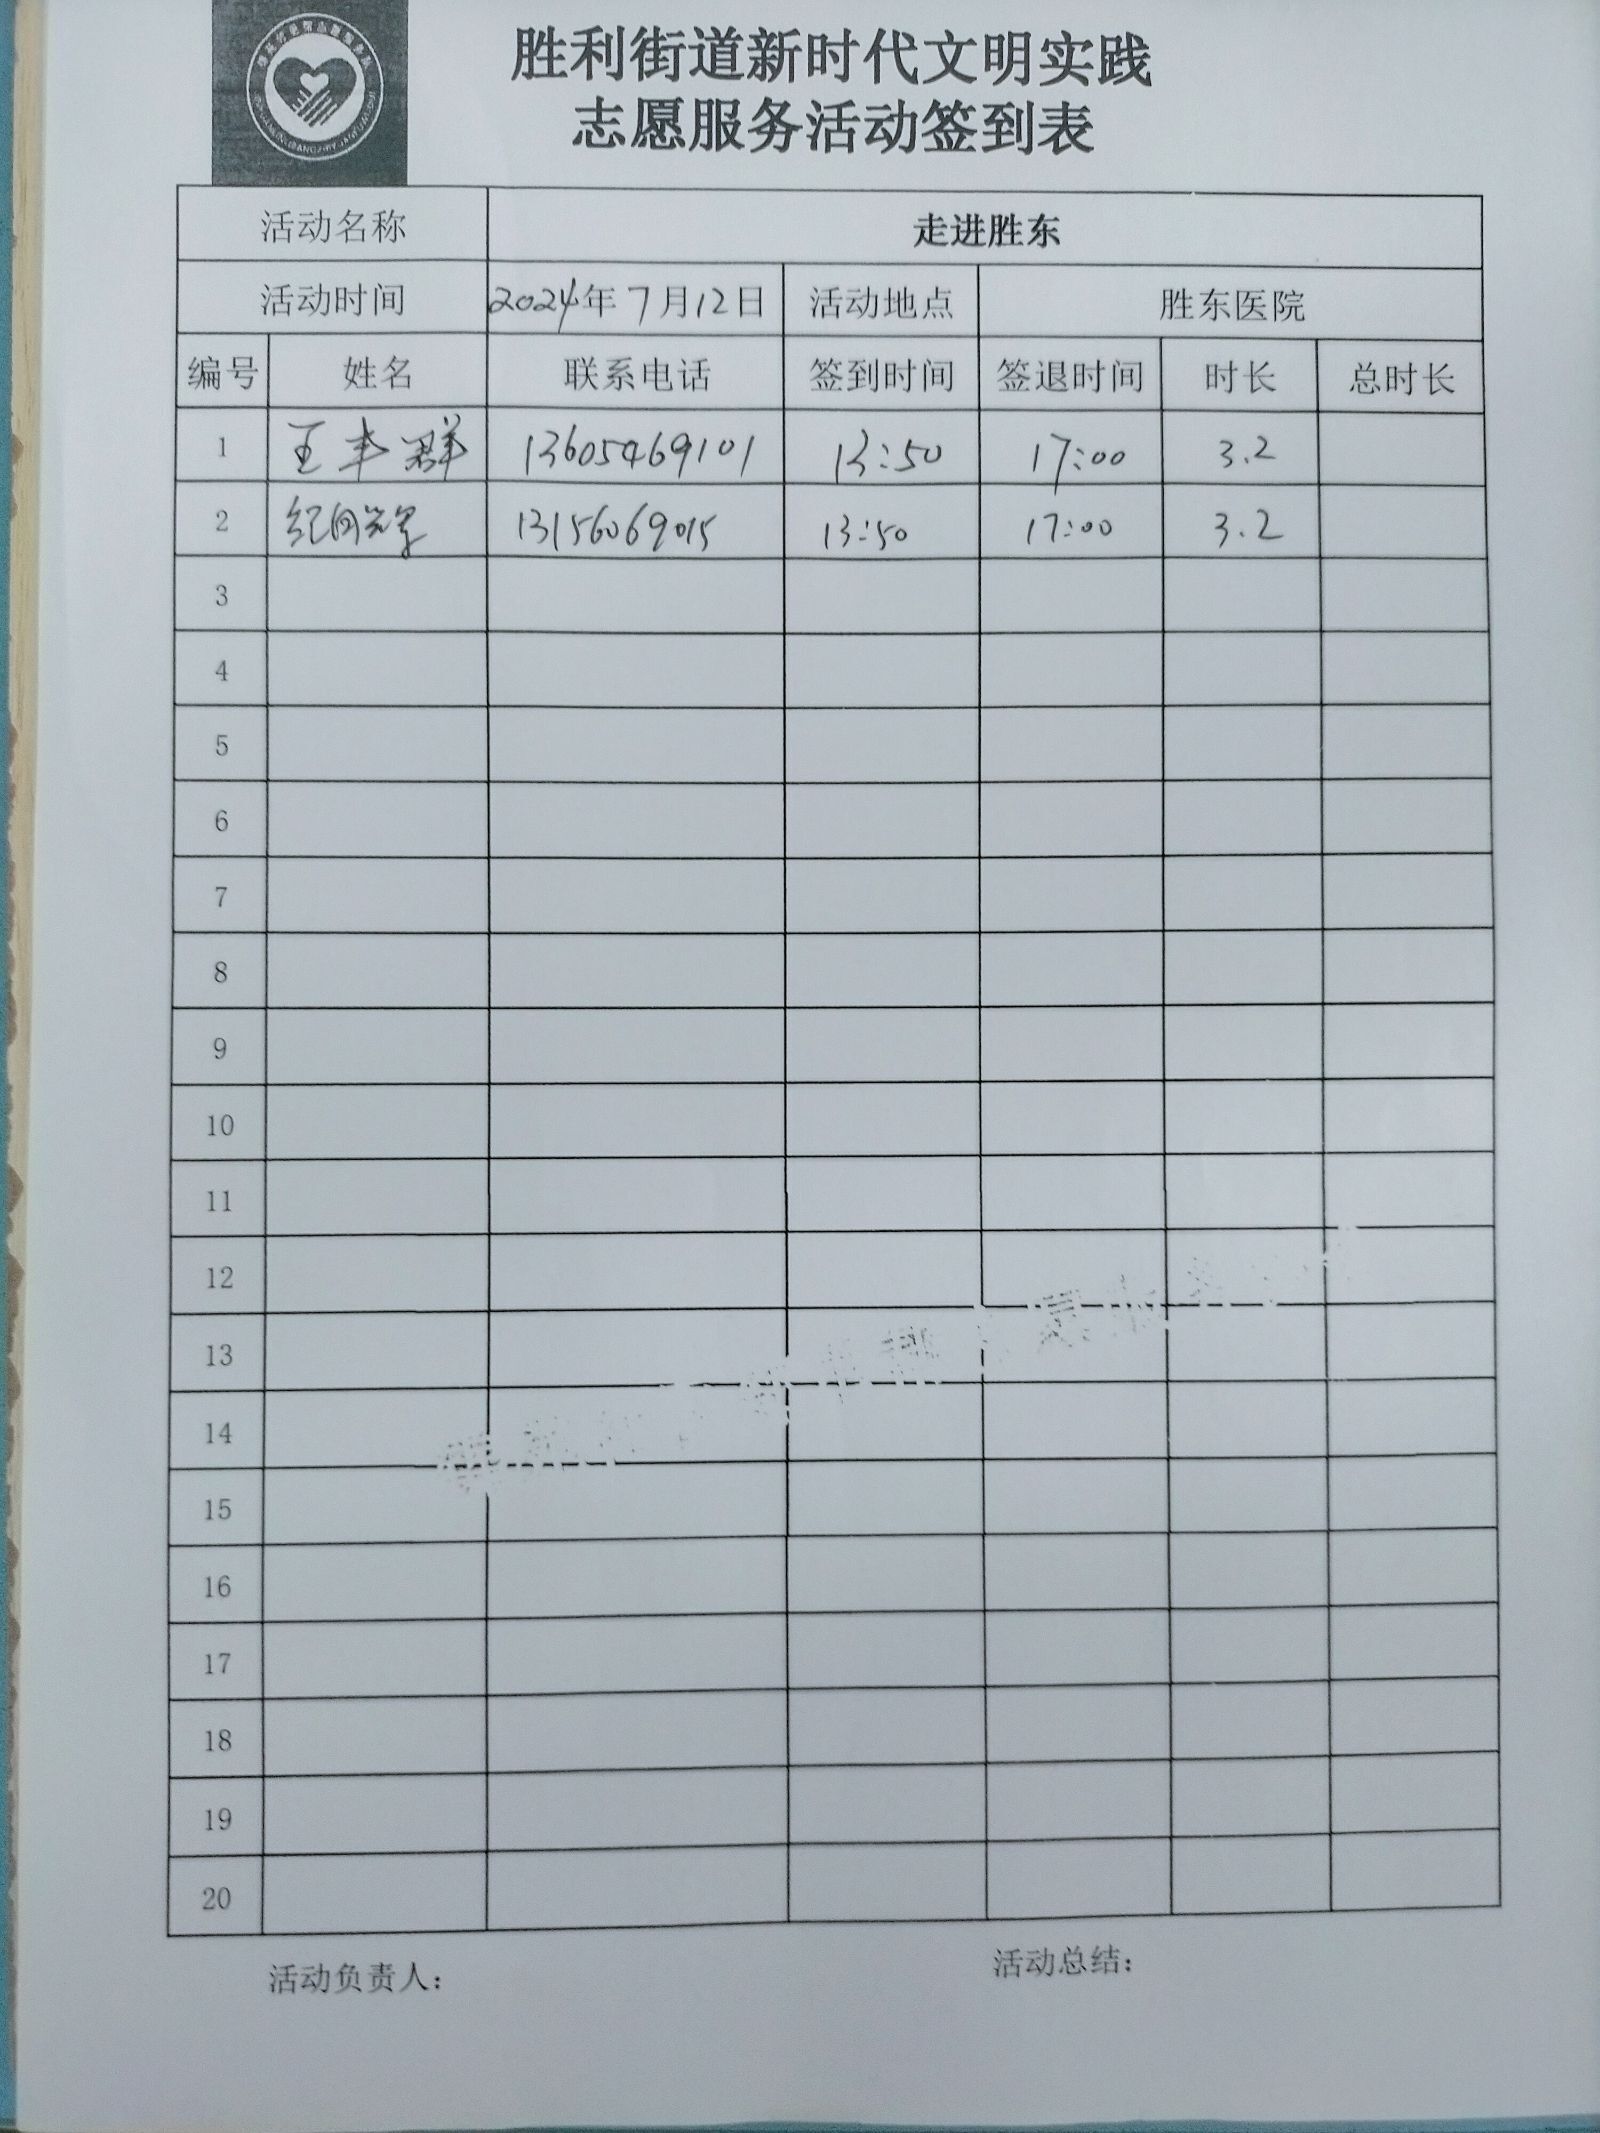 胜利街道新时代文明实践
志愿服务活动签到表
活动名称 走进胜东
活动时间 2024年7月12日 活动地点 胜东医院
编号 姓名 联系电话 签到时间 签退时间 时长 总时长
1 王丰群 13605469101 13:50 17:00 3.2
2 纪 13156069015 13:50 17:00 3.2
3
4
5
6
7
8
9
10
11
12
13
14
15
16
17
18
19
20
活动负责人： 活动总结：